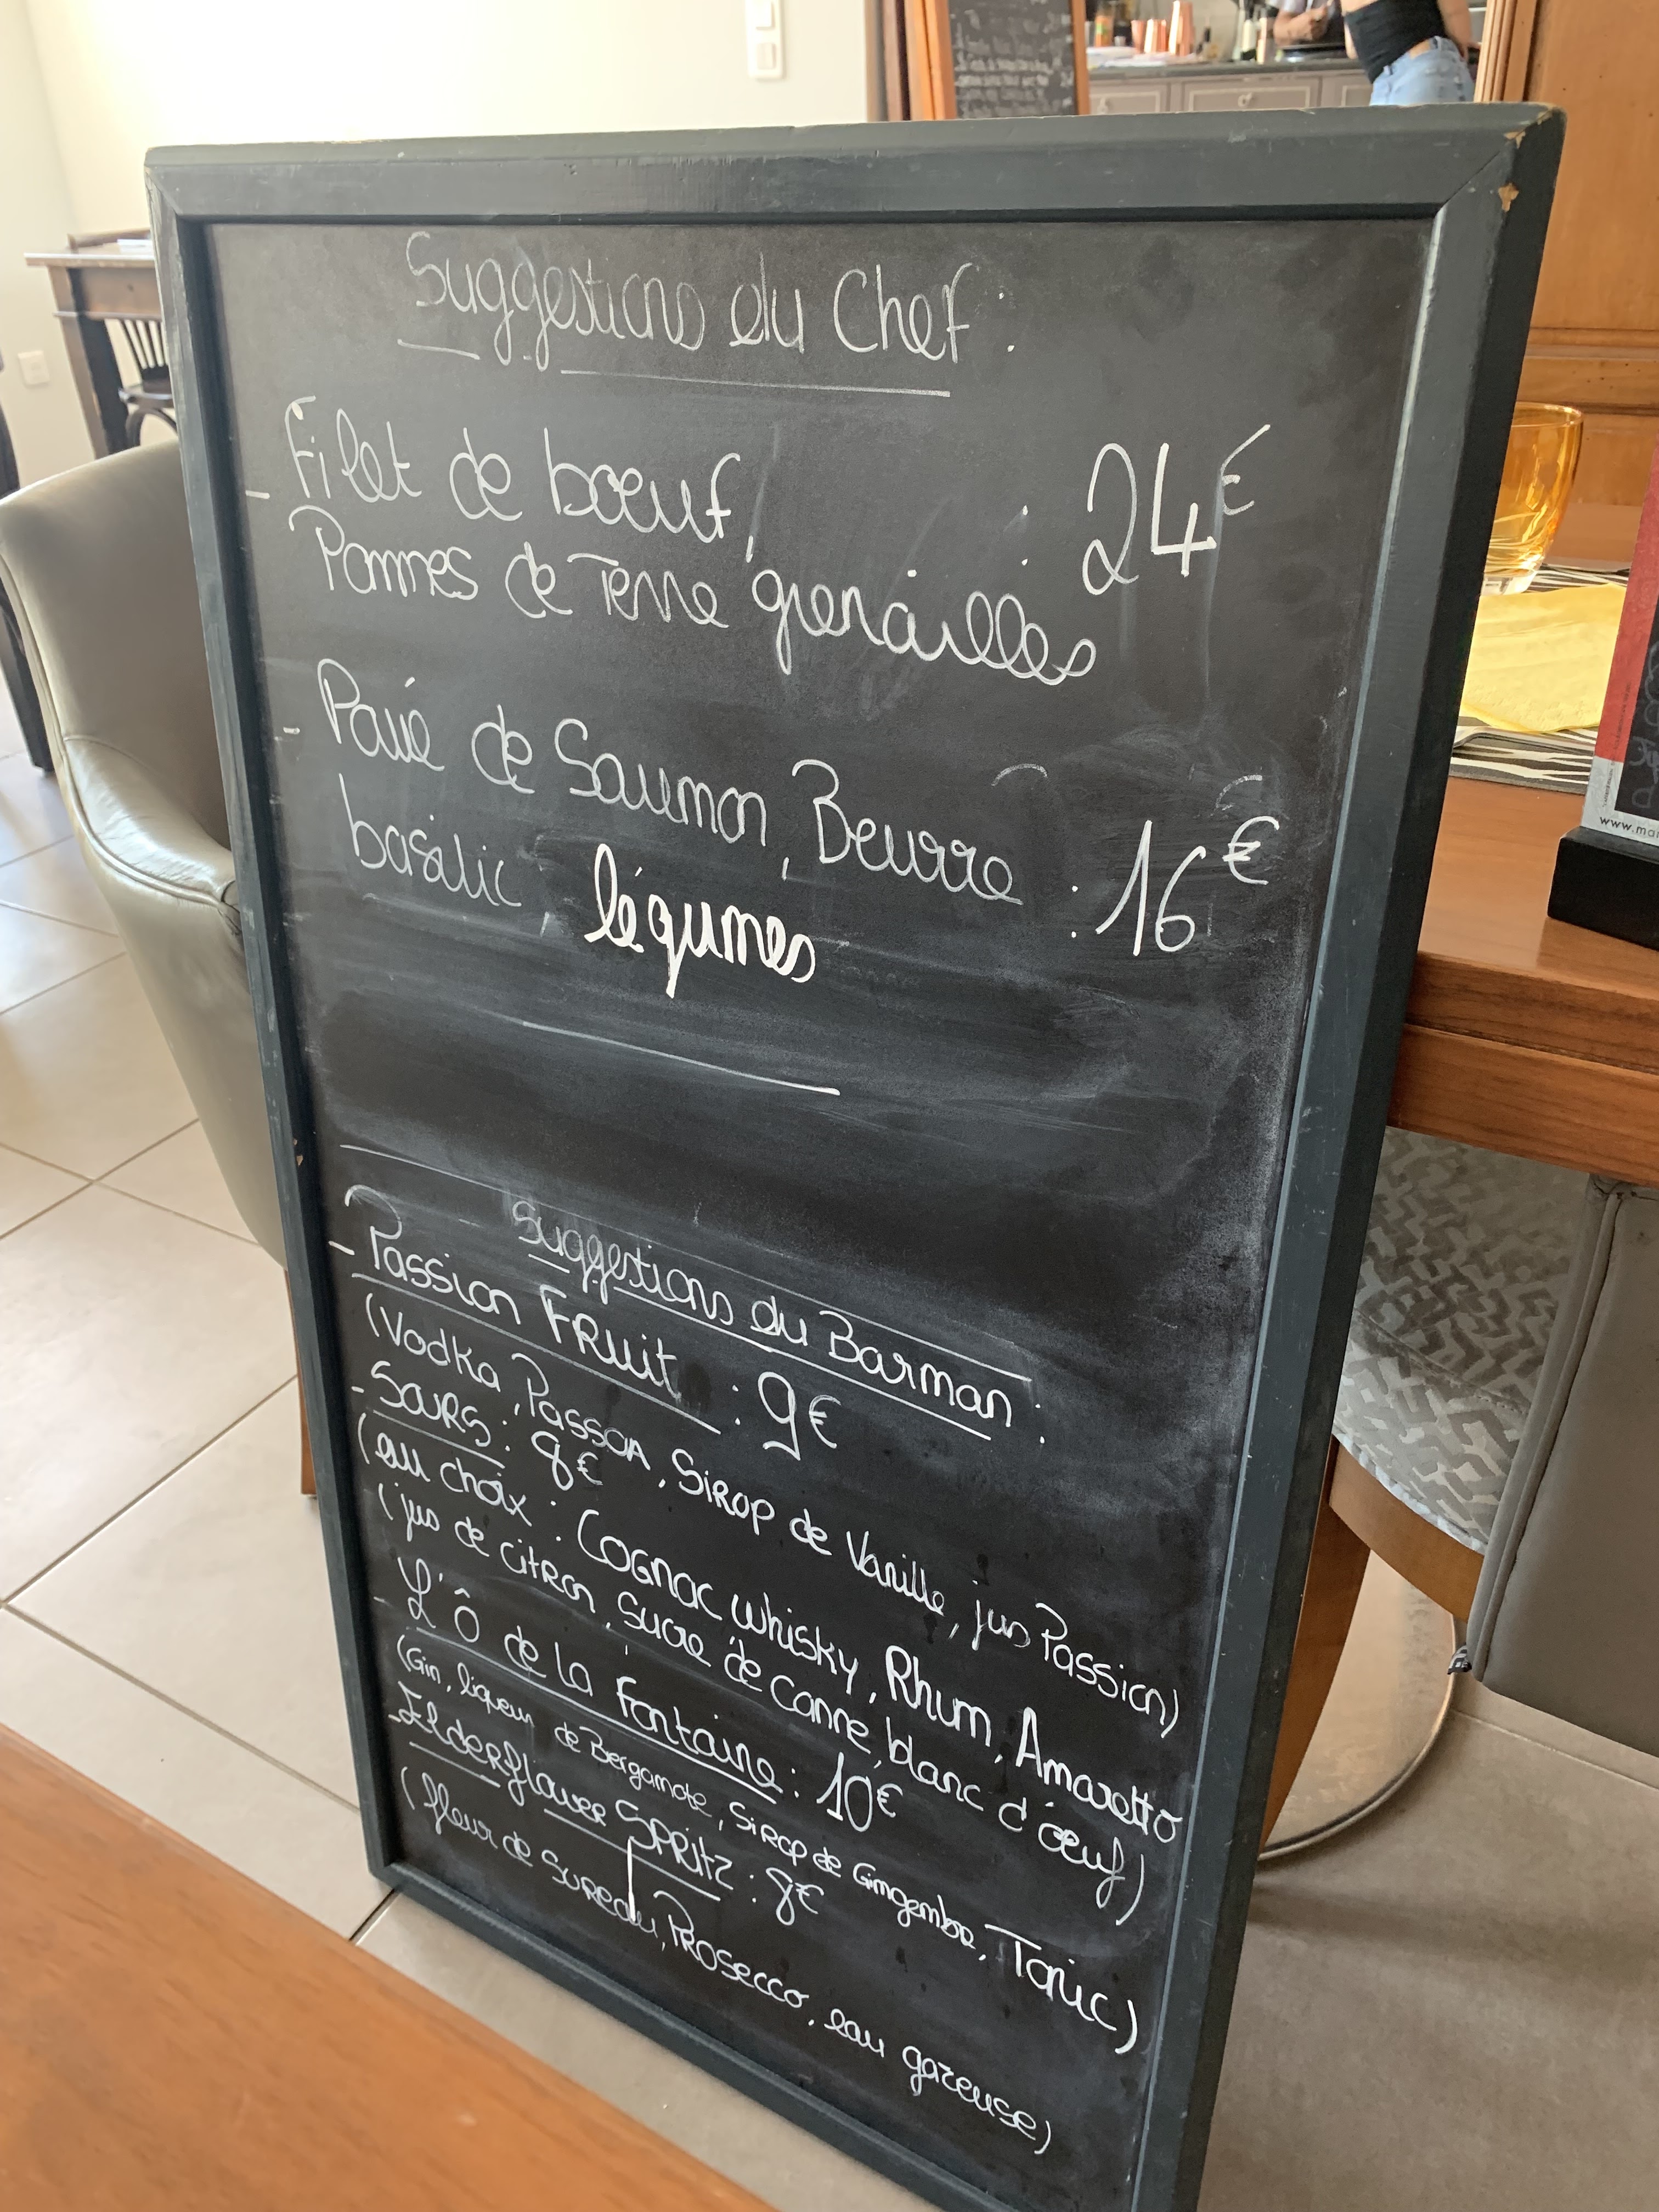 Suggestions du Chef :
- Filet de bœuf, : 24€
Pommes de Terre grenailles
- Pavé de Saumon, Beurre : 16€
basilic, légumes
Suggestions du Barman :
- Passion FRuit : 9€
(Vodka, PassoA, SiRop de Vanille, jus Passion)
- SouRS : 8€
(au choix : COGNAC whisky, Rhum, Amaretto
(jus de citron, sucre de canne, blanc d'œuf)
- L'Ô de La Fontaine : 10€
(Gin, liqueur de Bergamote, SiRop de Gimgembre, Tonic)
- Elderflower SPRitz : 8€
(fleur de SuReau, PRosecco, eau gazeuse)
www.mar